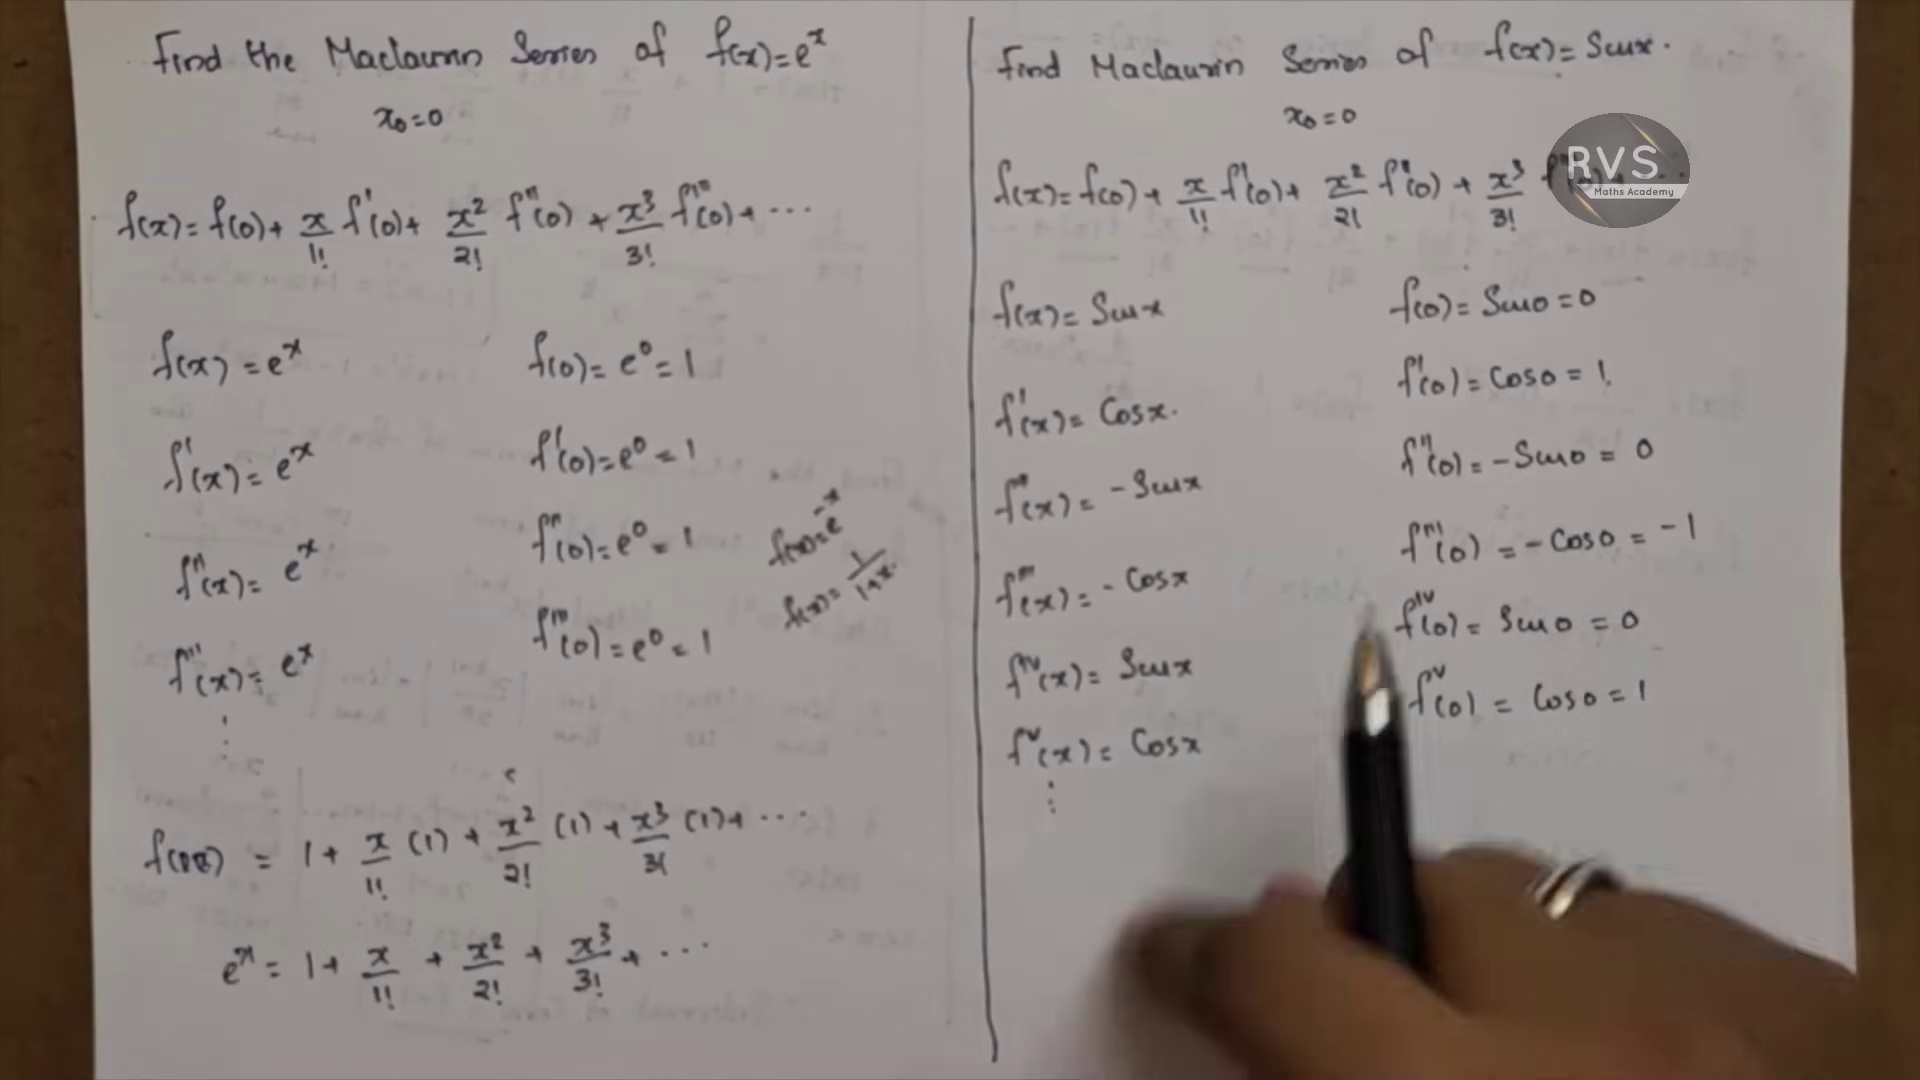 Find the Maclaurin Series of f(x)=e^x
x₀=0
f(x)=f(0)+ x/1! f'(0)+ x²/2! f''(0) + x³/3! f'''(0)+ ...
f(x) = e^x
f(0)= e⁰= 1
f'(x)= e^x
f'(0)=e⁰ = 1
f''(x)= e^x
f''(0)=e⁰ = 1
f'''(x)= e^x
f'''(0)=e⁰ = 1
⋮
f(x)=e^-x
f(x)= 1/1+x.
f(x) = 1+ x/1! (1) + x²/2! (1) + x³/3! (1)+ ...
e^x = 1+ x/1! + x²/2! + x³/3! + ...
Find Maclaurin Series of f(x)= Sinx.
x₀=0
f(x)= f(0)+ x/1! f'(0)+ x²/2! f''(0) + x³/3!
RVS
Maths Academy
f(x)= Sinx
f(0)= Sin0=0
f'(x)= Cosx.
f'(0)= Cos0 = 1.
f''(x)= -Sinx
f''(0)= -Sin0 = 0
f'''(x)= -Cosx
f'''(0) = -Cos0 = -1
f^IV(x)= Sinx
f^IV(0)= Sin0 = 0
f^V(x)= Cosx
f^V(0) = Cos0 = 1
⋮